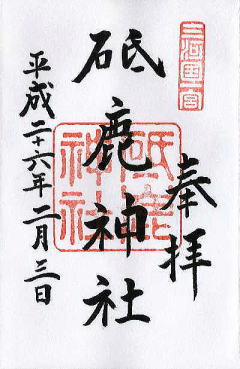 三河國一宮
奉拝
砥鹿神社
砥鹿神社
平成二十六年二月三日